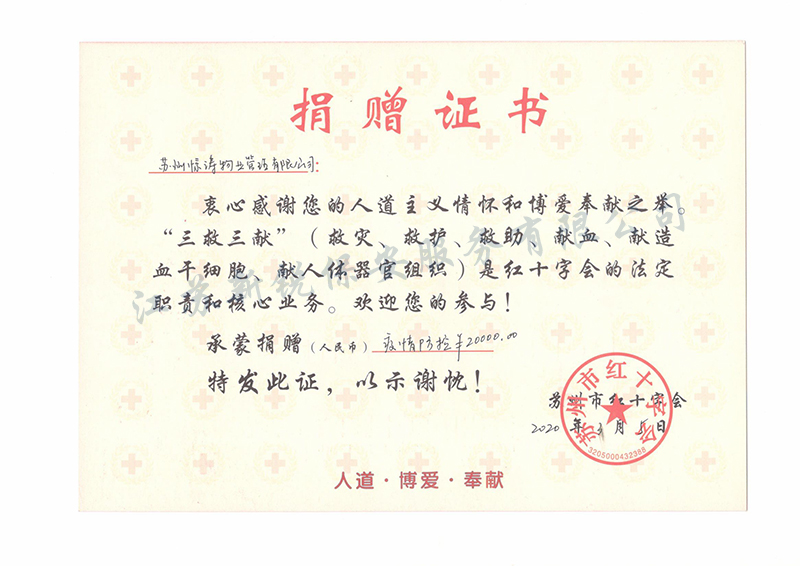 捐赠证书
苏州惊涛物业管理有限公司:
衷心感谢您的人道主义情怀和博爱奉献之举。
“三救三献”(救灾、救护、救助、献血、献造
血干细胞、献人体器官组织)是红十字会的法定
职责和核心业务。欢迎您的参与!
承蒙捐赠(人民币) 疫情防控¥20000.00
特发此证,以示谢忱!
苏州市红十字会
2020年 月 日
苏州市红十字会
3205000432366
人道·博爱·奉献
江苏新锐保安服务有限公司